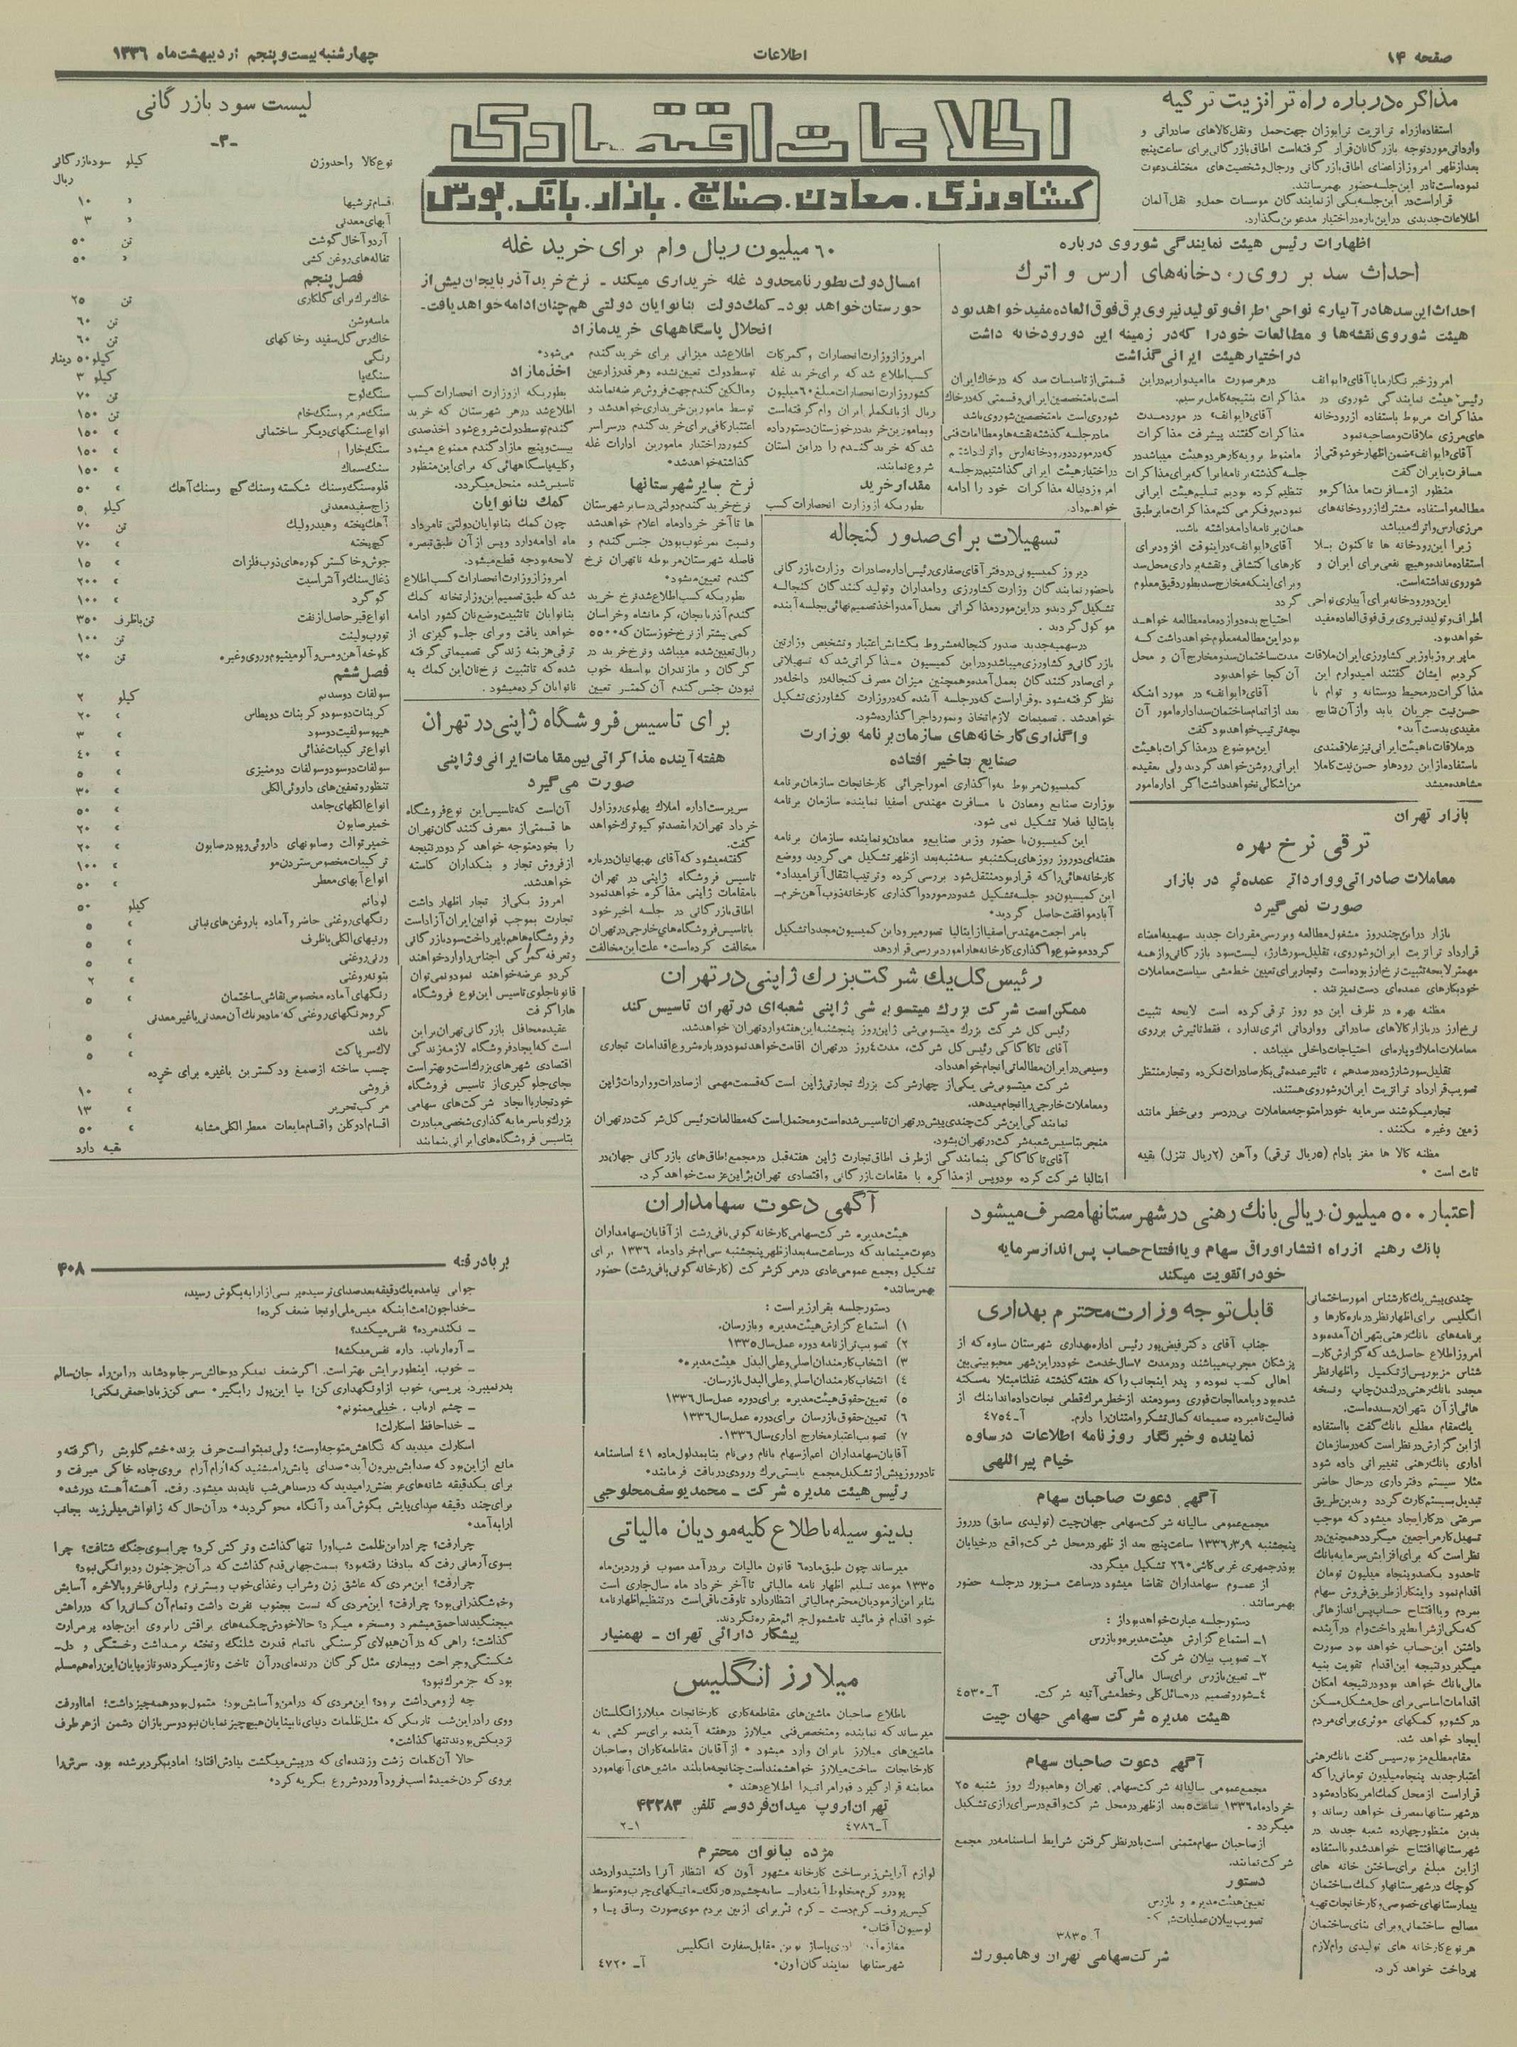 صفحه ۱۴
اطلاعات
چهارشنبه بیست و پنجم اردیبهشت ماه ۱۳۳۶
اطلاعات اقتصادی
کشاورزی . معادن . صنایع . بازار . بانک . بورس
مذاکره درباره راه ترانزیت ترکیه
استفاده از راه ترانزیت ترابوزان جهت حمل و نقل کالاهای صادراتی و
وارداتی مورد توجه بازرگانان قرار گرفته است اطاق بازرگانی برای ساعت پنج
بعد از ظهر امروز از اعضای اطاق بازرگانی و رجال و شخصیت های مختلف دعوت
نموده است تا در این جلسه حضور بهمرسانند.
قرار است در این جلسه یکی از نمایندگان موسسات حمل و نقل آلمان
اطلاعات جدیدی در این باره در اختیار مدعوین بگذارد.
اظهارات رئیس هیئت نمایندگی شوروی درباره
احداث سد بر روی رودخانه های ارس و اترک
احداث این سدها در آبیاری نواحی اطراف و تولید نیروی برق فوق العاده مفید خواهد بود
هیئت شوروی نقشه ها و مطالعات خود را که در زمینه این دو رودخانه داشت
در اختیار هیئت ایرانی گذاشت
امروز خبرنگار ما با آقای «ایوانف»
رئیس هیئت نمایندگی شوروی در
مذاکرات مربوط باستفاده از رودخانه
های مرزی ملاقات و مصاحبه نمود
آقای «ایوانف» ضمن اظهار خوشوقتی از
مسافرت بایران گفت
منظور از مسافرت ما مذاکره و
مطالعه و استفاده مشترک از رودخانه های
مرزی ارس و اترک میباشد
زیرا این رودخانه ها تاکنون بلا
استفاده مانده و هیچ نفعی برای ایران و
شوروی نداشته است.
این دو رودخانه برای آبیاری نواحی
اطراف و تولید نیروی برق فوق العاده مفید
خواهد بود.
ما پریروز با وزیر کشاورزی ایران ملاقات
کردیم ایشان گفتند امیدوارم این
مذاکرات در محیط دوستانه و توام با
حسن نیت جریان یابد و از آن نتایج
مفیدی بدست آید.
در ملاقات با هیئت ایرانی نیز علاقمندی
باستفاده از این رودها و حسن نیت کاملا
مشاهده میشد
در هر صورت ما امیدواریم در این
مذاکرات بنتیجه کامل برسیم.
آقای «ایوانف» در مورد مدت
مذاکرات گفتند پیشرفت مذاکرات
ما منوط برویه کار هر دو هیئت میباشد در
جلسه گذشته برنامه ایرا که برای مذاکرات
تنظیم کرده بودیم تسلیم هیئت ایرانی
نمودیم و فکر می کنم مذاکرات ما بر طبق
همان برنامه ادامه داشته باشد.
آقای «ایوانف» در اینوقت افزود برای
کارهای اکتشافی و نقشه برداری محل سد
و برای اینکه مخارج سد بطور دقیق معلوم
گردد
احتیاج بده دوازده ماه مطالعه خواهد
بود و این مطالعه معلوم خواهد داشت که
مدت ساختمان سد و مخارج آن و محل
آن کجا خواهد بود
آقای «ایوانف» در مورد اینکه
بعد از اتمام ساختمان سد اداره امور آن
بچه ترتیب خواهد بود گفت
این موضوع در مذاکرات با هیئت
ایرانی روشن خواهد گردید ولی بعقیده
من اشکالی نخواهد داشت اگر اداره امور
قسمتی از تاسیسات سد که در خاک ایران
است با متخصصین ایرانی و قسمتی که در خاک
شوروی است با متخصصین شوروی باشد
ما در جلسه گذشته نقشه ها و مطالعات فنی
که در مورد دو رودخانه ارس و اترک داشتیم
در اختیار هیئت ایرانی گذاشتیم در جلسه
امروز دنباله مذاکرات خود را ادامه
خواهیم داد.
بازار تهران
ترقی نرخ بهره
معاملات صادراتی و وارداتی عمده ئی در بازار
صورت نمی گیرد
بازار در این چند روز مشغول مطالعه و بررسی مقررات جدید سهمیه امضاء
قرارداد ترانزیت ایران و شوروی، تقلیل سورشارژ، لیست سود بازرگانی و از همه
مهمتر لایحه تثبیت نرخ ارز بوده است و تجار برای تعیین خط مشی سیاست معاملات
خود بکارهای عمده ای دست نمیزنند .
مظنه بهره در ظرف این دو روز ترقی کرده است لایحه تثبیت
نرخ ارز در بازار کالاهای صادراتی و وارداتی اثری ندارد ، فقط تاثیرش بر روی
معاملات املاک و پاره ای احتیاجات داخلی میباشد .
تقلیل سورشارژ ده درصد هم ، تاثیر عمده ئی بکار صادرات نکرده و تجار منتظر
تصویب قرارداد ترانزیت ایران و شوروی هستند.
تجار میکوشند سرمایه خود را متوجه معاملات بی دردسر و بی خطر مانند
زمین و غیره بکنند .
مظنه کالا ها مغز بادام (۵ ریال ترقی) و آهن (۲ ریال تنزل) بقیه
ثابت است .
۶۰ میلیون ریال وام برای خرید غله
امسال دولت بطور نامحدود غله خریداری میکند - نرخ خرید آذربایجان بیش از
خوزستان خواهد بود - کمک دولت بنانوایان دولتی هم چنان ادامه خواهد یافت -
انحلال پاسگاههای خرید مازاد
امروز از وزارت انحصارات و گمرکات
کسب اطلاع شد که برای خرید غله
کشور وزارت انحصارات مبلغ ۶۰ میلیون
ریال از بانک ملی ایران وام گرفته است
و بمامورین خرید در خوزستان دستور داده
شد که خرید گندم را در این استان
شروع نمایند.
مقدار خرید
بطوریکه از وزارت انحصارات کسب
اطلاع شد میزانی برای خرید گندم
توسط دولت تعیین نشده و هر قدر زارعین
و مالکین گندم جهت فروش عرضه نمایند
توسط مامورین خریداری خواهد شد و
اعتبار کافی برای خرید گندم در سراسر
کشور در اختیار مامورین ادارات غله
گذاشته خواهد شد.
نرخ سایر شهرستانها
نرخ خرید گندم دولتی در سایر شهرستان
ها تا آخر خرداد ماه اعلام خواهد شد
و نسبت بمرغوب بودن جنس گندم و
فاصله شهرستان مربوطه تا تهران نرخ
گندم تعیین میشود.
بطوریکه کسب اطلاع شد نرخ خرید
گندم آذربایجان، کرمانشاه و خراسان
کمی بیشتر از نرخ خوزستان که ۵۵۰۰
ریال تعیین شده میباشد و نرخ خرید در
گرگان و مازندران بواسطه خوب
نبودن جنس گندم آن کمتر تعیین
می شود.
اخذ مازاد
بطوریکه از وزارت انحصارات کسب
اطلاع شد در هر شهرستان که خرید
گندم توسط دولت شروع شود اخذ صدی
بیست و پنج مازاد گندم ممنوع میشود
و کلیه پاسگاههائی که برای این منظور
تاسیس شده منحل میگردد.
کمک نانوایان
چون کمک بنانوایان دولتی تا مرداد
ماه ادامه دارد و پس از آن طبق تبصره
لایحه بودجه قطع میشود.
امروز از وزارت انحصارات کسب اطلاع
شد که طبق تصمیم این وزارتخانه کمک
بنانوایان تا تثبیت وضع نان کشور ادامه
خواهد یافت و برای جلوگیری از
ترقی هزینه زندگی تصمیماتی گرفته
شده که تا تثبیت نرخ نان این کمک به
نانوایان کرده میشود .
تسهیلات برای صدور کنجاله
دیروز کمیسیونی در دفتر آقای صفاری رئیس اداره صادرات وزارت بازرگانی
با حضور نمایندگان وزارت کشاورزی و دامداران و تولید کنندگان کنجاله
تشکیل گردید و در این مورد مذاکراتی بعمل آمد و اخذ تصمیم نهائی بجلسه آینده
موکول گردید .
در سهمیه جدید صدور کنجاله مشروط بگشایش اعتبار و تشخیص وزارتین
بازرگانی و کشاورزی میباشد و در این کمیسیون مذاکراتی شد که تسهیلاتی
برای صادر کنندگان بعمل آمد و همچنین میزان مصرف کنجاله در داخله در
نظر گرفته شود . و قرار است که در جلسه آینده که در وزارت کشاورزی تشکیل
خواهد شد . تصمیمات لازم اتخاذ و بمورد اجرا گذارده شود.
واگذاری کارخانه های سازمان برنامه بوزارت
صنایع بتاخیر افتاده
کمیسیون مربوط به واگذاری امور اجرائی کارخانجات سازمان برنامه
بوزارت صنایع و معادن با مسافرت مهندس اصفیا نماینده سازمان برنامه
بایتالیا فعلا تشکیل نمی شود.
این کمیسیون با حضور وزیر صنایع و معادن و نماینده سازمان برنامه
هفته ای دو روز روزهای یکشنبه و سه شنبه بعد از ظهر تشکیل می گردید و وضع
کارخانه هائی را که قرار بود منتقل شود بررسی کرده و ترتیب انتقال آنرا میداد.
این کمیسیون دو جلسه تشکیل شد و در مورد واگذاری کارخانه ذوب آهن خرم-
آباد موافقت حاصل گردید.
با مراجعت مهندس اصفیا از ایتالیا تصور میرود این کمیسیون مجددا تشکیل
گردد و موضوع واگذاری کارخانه ها را مورد بررسی قرار دهد
برای تاسیس فروشگاه ژاپنی در تهران
هفته آینده مذاکراتی بین مقامات ایرانی و ژاپنی
صورت می گیرد
سرپرست اداره املاک پهلوی روز اول
خرداد تهران را بقصد توکیو ترک خواهد
گفت.
گفته میشود که آقای بهبهانیان درباره
تاسیس فروشگاه ژاپنی در تهران
با مقامات ژاپنی مذاکره خواهد نمود
اطاق بازرگانی در جلسه اخیر خود
با تاسیس فروشگاه های خارجی در تهران
مخالفت کرده است. علت این مخالفت
آن است که تاسیس این نوع فروشگاه
ها قسمتی از مصرف کنندگان تهران
را بخود متوجه خواهد کرد و در نتیجه
از فروش تجار و بنکداران کاسته
خواهد شد.
امروز یکی از تجار اظهار داشت
تجارت بموجب قوانین ایران آزاد است
و فروشگاه ها هم با پرداخت سود بازرگانی
و تعرفه گمرکی اجناس را وارد خواهند
کرد و عرضه خواهند نمود و نمی توان
قانونا جلوی تاسیس این نوع فروشگاه
ها را گرفت
عقیده محافل بازرگانی تهران بر این
است که ایجاد فروشگاه لازمه زندگی
اقتصادی شهرهای بزرگ است و بهتر است
بجای جلوگیری از تاسیس فروشگاه
خود تجار با ایجاد شرکت های سهامی
بزرگ و با سرمایه گذاری شخصی مبادرت
بتاسیس فروشگاه های ایرانی بنمایند
رئیس کل یک شرکت بزرگ ژاپنی در تهران
ممکن است شرکت بزرگ میتسوبی شی ژاپنی شعبه ای در تهران تاسیس کند
رئیس کل شرکت بزرگ میتسوبی شی ژاپن روز پنجشنبه این هفته وارد تهران خواهد شد.
آقای تاکاکاکی رئیس کل شرکت، مدت ۴ روز در تهران اقامت خواهد نمود و درباره شروع اقدامات تجاری
وسیعی در ایران مطالعاتی انجام خواهد داد.
شرکت میتسوبی شی یکی از چهار شرکت بزرگ تجارتی ژاپن است که قسمت مهمی از صادرات و واردات ژاپن
و معاملات خارجی را انجام میدهد.
نمایندگی این شرکت چندی پیش در تهران تاسیس شده است و محتمل است که مطالعات رئیس کل شرکت در تهران
منجر بتاسیس شعبه شرکت در تهران بشود.
آقای تاکاکاکی بنمایندگی از طرف اطاق تجارت ژاپن هفته قبل در مجمع اطاق های بازرگانی جهان در
ایتالیا شرکت کرده بود و پس از مذاکره با مقامات بازرگانی و اقتصادی تهران بژاپن عزیمت خواهد کرد.
لیست سود بازرگانی
-۳-
نوع کالا واحد وزن کیلو سود بازرگانی
ریال
اقسام ترشیها » ۱۰
آبهای معدنی » ۳
آرد و آخال گوشت تن ۵۰
تفاله های روغن کشی » ۵۰
فصل پنجم
خاک برک برای گلکاری تن ۲۵
ماسه و شن تن ۶۰
خاک رس گل سفید و خاکهای تن ۶۰
رنگی کیلو ۵۰ دینار
سنگ پا کیلو ۳
سنگ لوح تن ۷۰
سنگ مرمر و سنگ خام تن ۱۵۰
انواع سنگهای دیگر ساختمانی » ۱۵۰
سنگ خارا » ۱۵۰
سنگ سماک » ۱۵۰
قلوه سنگ و سنگ شکسته و سنگ گچ و سنگ آهک » ۵۰
زاج سفید معدنی کیلو ۵
آهک پخته و هیدرولیک تن ۷۰
گچ پخته » ۷۰
جوش و خاکستر کوره های ذوب فلزات » ۱۵
ذغال سنگ و آنتراسیت » ۲۰۰
گوگرد » ۱۰۰
انواع قیر حاصل از نفت تن باظرف ۳۵۰
تورب و لینیت تن ۱۰۰
کلوخه آهن و مس و آلومینیوم و روی و غیره تن ۲۰
فصل ششم
سولفات دوسدیم کیلو ۲
کربنات دوسود و کربنات دوپطاس » ۲۰
هیپوسولفیت دوسود » ۳
انواع ترکیبات غذائی » ۴۰
سولفات دوسود و سولفات دومنیزی » ۵
تنطور و تعفین های داروئی الکلی » ۳۰
انواع الکلهای جامد » ۵۰
خمیر صابون » ۲۰
خمیر توالت و صابونهای داروئی و پودر صابون » ۲۰
ترکیبات مخصوص ستردن مو » ۱۰۰
انواع آبهای معطر » ۵۰
لودانم کیلو ۵۰
رنگهای روغنی حاضر و آماده با روغن های نباتی » ۵
ورنیهای الکلی باظرف » ۵
ورنی روغنی » ۵
بتونه روغنی » ۲
رنگهای آماده مخصوص نقاشی ساختمان » ۵
گروه رنگهای روغنی که ماده رنگ آن معدنی یا غیر معدنی
باشد » ۵
لاک سر پاکت » ۵
چسب ساخته از صمغ و دکسترین یا غیره برای خرده
فروشی » ۱۰
مرکب تحریر » ۱۳
اقسام ادوکلن و اقسام مایعات معطر الکلی مشابه » ۵۰
بقیه دارد
اعتبار ۵۰۰ میلیون ریالی بانک رهنی در شهرستانها مصرف میشود
بانک رهنی از راه انتشار اوراق سهام و یا افتتاح حساب پس انداز سرمایه
خود را تقویت میکند
چندی پیش یک کارشناس امور ساختمانی
انگلیسی برای اظهار نظر درباره کارها و
برنامه های بانک رهنی بتهران آمده بود
امروز اطلاع حاصل شد که گزارش کار-
شناس مزبور پس از تکمیل و اظهار نظر
مجدد بانک رهنی در لندن چاپ و نسخه
هائی از آن بتهران رسیده است.
یک مقام مطلع بانک گفت با استفاده
از این گزارش در نظر است که در سازمان
اداری بانک رهنی تغییراتی داده شود
مثلا سیستم دفتر داری در حال حاضر
تبدیل بسیستم کارت گردد و بدین طریق
سرعتی در کار ایجاد میشود که موجب
تسهیل کار مراجعین میگردد همچنین در
نظر است که برای افزایش سرمایه بانک
تا حدود یکصد و پنجاه میلیون تومان
اقدام نمود و اینکار از طریق فروش سهام
بمردم و یا افتتاح حساب پس اندازهائی
که یکی از شرایط پرداخت وام در آینده
داشتن این حساب خواهد بود صورت
میگیرد و در نتیجه این اقدام تقویت بنیه
مالی بانک خواهد بود و در نتیجه امکان
اقدامات اساسی برای حل مشکل مسکن
در کشور و کمکهای موثری برای مردم
ایجاد خواهد شد.
مقام مطلع مزبور سپس گفت بانک رهنی
اعتبار جدید پنجاه میلیون تومانی را که
قرار است از محل کمک امریکا داده شود
در شهرستانها بمصرف خواهد رساند و
بدین منظور چهارده شعبه جدید در
شهرستانها افتتاح خواهد شد و با استفاده
از این مبلغ برای ساختن خانه های
کوچک در شهرستانها و کمک ساختمان
بیمارستانهای خصوصی و کارخانجات تهیه
مصالح ساختمانی و برای بنای ساختمان
هر نوع کارخانه های تولیدی وام لازم
پرداخت خواهد کرد.
قابل توجه وزارت محترم بهداری
جناب آقای دکتر فیض پور رئیس اداره بهداری شهرستان ساوه که از
پزشکان مجرب میباشند و در مدت ۷ سال خدمت خود در این شهر محبوبیتی بین
اهالی کسب نموده و پدر اینجانب را که هفته گذشته غفلتا مبتلا به سکته
شده بود با معالجات فوری و سودمند از خطر مرگ قطعی نجات داده اند اینک از
فعالیت نامبرده صمیمانه کمال تشکر و امتنان را دارم. آ-۴۷۵۴
نماینده و خبرنگار روزنامه اطلاعات در ساوه
خیام پیراللهی
آگهی دعوت صاحبان سهام
مجمع عمومی سالیانه شرکت سهامی جهان چیت (تولیدی سابق) در روز
پنجشنبه ۹ر۳ر۱۳۳۶ ساعت پنج بعد از ظهر در محل شرکت واقع در خیابان
بوذرجمهری غربی کاشی ۲۶۰ تشکیل میگردد.
از عموم سهامداران تقاضا میشود در ساعت مزبور در جلسه حضور
بهمرسانند .
دستور جلسه عبارت خواهد بود از :
۱- استماع گزارش هیئت مدیره و بازرس
۲- تصویب بیلان شرکت
۳- تعیین بازرس برای سال مالی آتی
۴- شور و تصمیم در مسائل کلی و خط مشی آتیه شرکت. آ-۴۵۳۰
هیئت مدیره شرکت سهامی جهان چیت
آگهی دعوت صاحبان سهام
مجمع عمومی سالیانه شرکت سهامی تهران و هامبورک روز شنبه ۲۵
خرداد ماه ۱۳۳۶ ساعت ۵ بعد از ظهر در محل شرکت واقع در سرای رازی تشکیل
میگردد .
از صاحبان سهام متمنی است با در نظر گرفتن شرایط اساسنامه در مجمع
شرکت نمایند.
دستور
تعیین هیئت مدیره و بازرس
تصویب بیلان عملیات شرکت
آ-۳۸۳۵
شرکت سهامی تهران و هامبورک
آگهی دعوت سهامداران
هیئت مدیره شرکت سهامی کارخانه گونی بافی رشت از آقایان سهامداران
دعوت مینماید که در ساعت سه بعد از ظهر پنجشنبه سی ام خرداد ماه ۱۳۳۶ برای
تشکیل مجمع عمومی عادی در مرکز شرکت (کارخانه گونی بافی رشت) حضور
بهمرسانند.
دستور جلسه بقرار زیر است :
۱) استماع گزارش هیئت مدیره و بازرسان.
۲) تصویب ترازنامه دوره عمل سال ۱۳۳۵
۳) انتخاب کارمندان اصلی و علی البدل هیئت مدیره.
۴) انتخاب کارمندان اصلی و علی البدل بازرسان.
۵) تعیین حقوق هیئت مدیره برای دوره عمل سال ۱۳۳۶
۶) تعیین حقوق بازرسان برای دوره عمل سال ۱۳۳۶
۷) تصویب اعتبار مخارج اداری سال ۱۳۳۶.
آقایان سهامداران اعم از سهام با نام و بی نام بنا بمدلول ماده ۴۱ اساسنامه
تا ده روز پیش از تشکیل مجمع بایستی برک ورودی دریافت فرمایند.
رئیس هیئت مدیره شرکت - محمد یوسف محلوجی
بدینوسیله باطلاع کلیه مودیان مالیاتی
میرساند چون طبق ماده ۶ قانون مالیات بر درآمد مصوب فروردین ماه
۱۳۳۵ موعد تسلیم اظهار نامه مالیاتی تا آخر خرداد ماه سال جاری است
بنابراین از مودیان محترم مالیاتی انتظار دارد تا وقت باقی است در تنظیم اظهارنامه
خود اقدام فرمائید تا مشمول جرائم مقرره نگردند.
پیشکار دارائی تهران - بهمنیار
میلارز انگلیس
باطلاع صاحبان ماشین های مقاطعه کاری کارخانجات میلارز انگلستان
میرساند که نماینده و متخصص فنی میلارز در هفته آینده برای سرکشی به
ماشین های میلارز بایران وارد میشود . از آقایان مقاطعه کاران و صاحبان
کارخانجات ساخت میلارز خواهشمند است چنانچه مایلند ماشین های آنها مورد
معاینه قرار گیرد فورا مراتب را اطلاع دهند .
تهران اروپ میدان فردوسی تلفن ۴۲۲۸۳
آ-۴۷۸۶ ۲-۱
مژده ببانوان محترم
لوازم آرایش زیر ساخت کارخانه مشهور آون که انتظار آنرا داشتید وارد شد
پودر و کرم مخلوط آینه دار- سایه چشم در ۵ رنگ- ماتیکهای چرب و متوسط
کیس پروف- کرم دست - کرم نثر برای از بین بردم موی صورت و ساق پا و
لوسیون آفتاب.
مقابل سفارت انگلیس
شهرستانها نمایندگان آون. آ- ۴۷۲۰
بر باد رفته ۴۰۸
جوابی نیامد و یک دقیقه بعد صدای ترسیده پریسی از ارابه بگوش رسید،
-خداجون! مث اینکه میس ملی اونجا ضعف کرده!
- نکند مرده؟ نفس میکشد؟
- آره ارباب. داره نفس میکشه!
- خوب. اینطور برایش بهتر است. اگر ضعف نمیکرد و حالش سر جا بود شاید در این راه جان سالم
بدر نمیبرد. پریسی، خوب از او نگهداری کن! بیا این پول را بگیر . سعی کن زیاد احمقی نکنی!
- چشم ارباب . خیلی ممنونم.
- خدا حافظ اسکارلت!
اسکارلت میدید که نگاهش متوجه اوست؛ ولی نمیتوانست حرف بزند. خشم گلویش را گرفته و
مانع از این بود که صدایش بیرون آید. صدای پایش را میشنید که آرام آرام بروی جاده خاکی میرفت و
برای یکدقیقه شانه های عریضش را میدید که در سیاهی شب ناپدید میشود. رفت. آهسته آهسته دور شد.
برای چند دقیقه صدای پایش بگوش آمد و آنگاه محو گردید. در آن حال که زانوانش میلرزید بجانب
ارابه آمد.
چرا رفت؟ چرا در این ظلمت شب او را تنها گذاشت و ترکش کرد؟ چرا بسوی جنگ شتافت؟ چرا
بسوی آرمانی رفت که بباد فنا رفته بود؟ بسمت جهانی قدم گذاشت که در آن جز جنون و دیوانگی نبود؟
چرا رفت؟ این مردی که عاشق زن و شراب و غذای خوب و بستر نرم و لباس فاخر و بالاخره آسایش
و خوشگذرانی بود؟ چرا رفت؟ این مردی که نسبت بجنوب نفرت داشت و تمام آن کسانی را که در راهش
میجنگیدند احمق میشمرد و مسخره میکرد؟ حالا خودش چکمه های براقش را بروی این جاده پر مرارت
گذاشت؛ راهی که در آن هیولای گرسنگی با تمام قدرت شلنگ و تخته برمیداشت و خستگی و دل-
شکستگی و جراحت و بیماری مثل گرگان درنده ای در آن تاخت و تاز میکردند و تازه پایان این راه هم مسلم
بود که جز مرگ نبود؟
چه لزومی داشت برود؟ این مردی که در امن و آسایش بود؛ متمول بود و همه چیز داشت؛ اما او رفت
و وی را در این شب تاریکی که مثل ظلمات دنیای نابینایان هیچ چیز نمایان نبود و سربازان دشمن از هر طرف
نزدیکش بودند تنها گذاشت.
حالا آن کلمات زشت و زننده ای که در پیش میگشت بیادش افتاد؛ اما دیگر دیر شده بود. سرش را
بروی گردن خمیده اسب فرود آورد و شروع بگریه کرد.